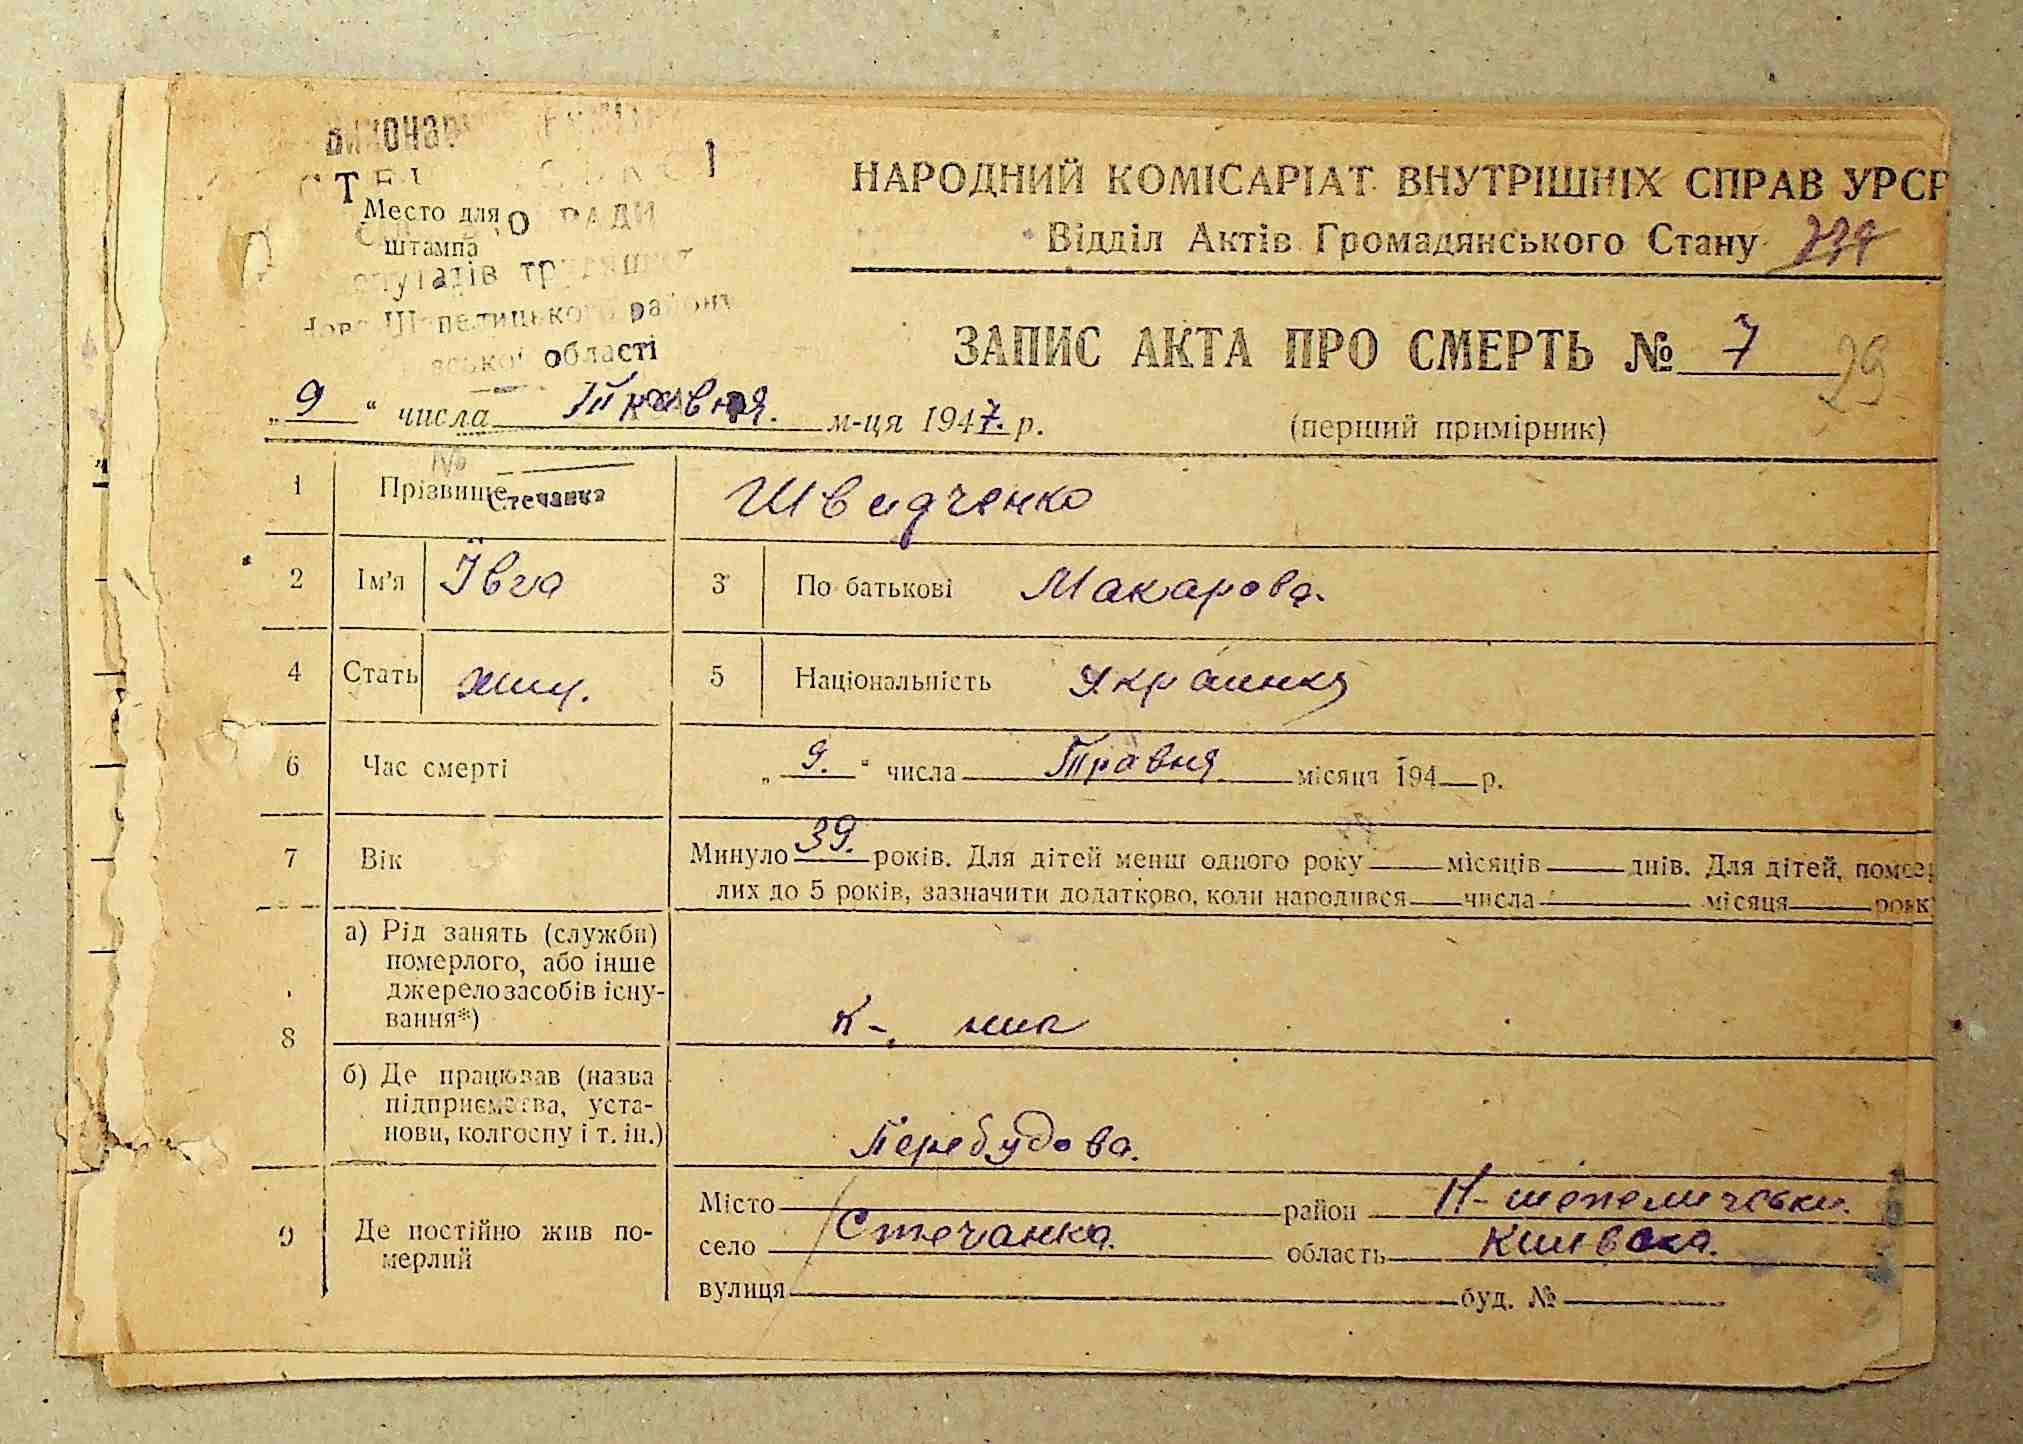 1
Место для
штампа
РАДИ
області
НАРОДНИЙ КОМІСАРІАТ ВНУТРІШНІХ СПРАВ УРСР
Відділ Актів Громадянського Стану 234
ЗАПИС АКТА ПРО СМЕРТЬ № 7 29
„ 9 “ числа Травня. м-ця 1947. р. (перший примірник)
1 Прізвище Стечанка Швидченко
2 Ім'я Ївга 3 По батькові Макарова.
4 Стать жін. 5 Національність Украинка
6 Час смерті „ 9. “ числа Травня місяця 194 р.
7 Вік Минуло 39. років. Для дітей менш одного року місяців днів. Для дітей, помер
лих до 5 років, зазначити додатково, коли народився числа місяця року
8 а) Рід занять (служби)
померлого, або інше
джерело засобів існу-
вання*) к-. ник
б) Де працював (назва
підприємства, уста-
нови, колгоспу і т. ін.) Перебудова.
9 Де постійно жив по-
мерлий
Місто район Н-шепеличськи.
село Стечанка. область Київска.
вулиця буд. №